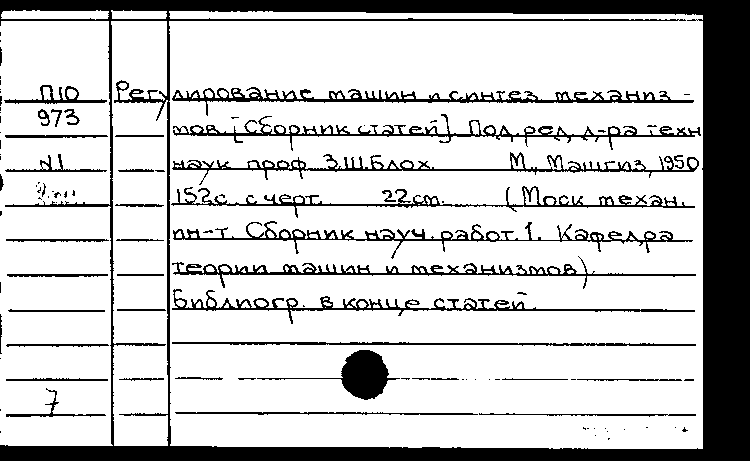 П10
973
N1
7
Регулирование машин и синтез механиз-
мов. [Сборник статей]. Под. ред. д-ра техн
наук проф З.Ш.Блох. М., Машгиз, 1950.
152с. с черт. 22см. (Моск механ.
ин-т. Сборник науч. работ. 1. Кафедра
теории машин и механизмов).
Библиогр. в конце статей.